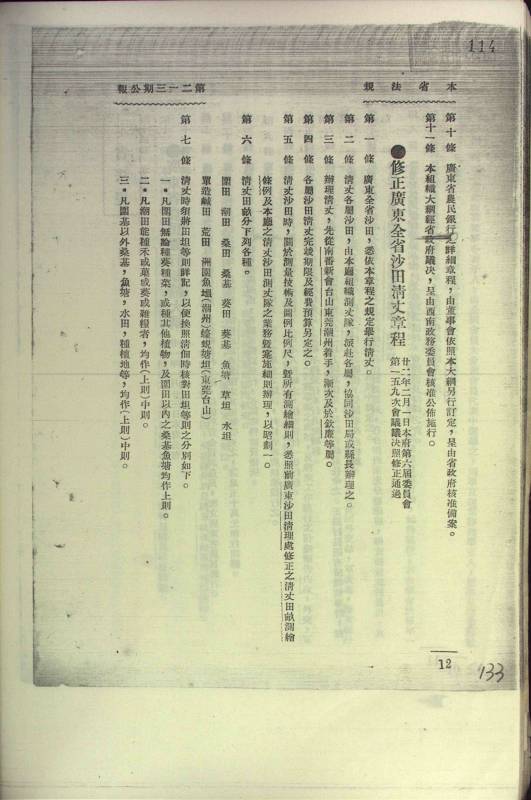 114
本省法規
第二一三期公報
第十條 廣東省農民銀行之詳細章程，由董事會依照本大綱另行訂定，呈由省政府核准備案。
第十一條 本組織大綱經省政府議決，呈由西南政務委員會核准公佈施行。
●修正廣東全省沙田清丈章程
廿二年二月一日本府第六屆委員會
第一五九次會議議決照修正通過
第一條 廣東全省沙田，悉依本章程之規定舉行清丈。
第二條 清丈各屬沙田，由本廳組織測丈隊，派赴各屬，協同沙田局或縣長辦理之。
第三條 辦理清丈，先從南番新會台山東莞潮州着手，漸次及於欽廉等屬。
第四條 各屬沙田清丈完竣期限及經費預算另定之。
第五條 清丈沙田時，關於測量技術及圖例比例尺，暨所有測繪細則，悉照前廣東沙田清理處修正之清丈田畝測繪
條例及本廳之清丈沙田測丈隊之業務暨案施細則辦理，以昭劃一。
第六條 清丈田畝分下列各種。
圍田 潮田 桑田 桑基 葵田 葵基 魚塘 草坦 水坦
單造鹹田 荒田 洲園魚塭（潮州）蠔蜆塘坦（東莞台山）
第七條 清丈時須將田坦等則詳記，以便換照清佃時核對田坦等則之分別如下。
一・凡圍田無論種葵種菜，或種其他植物，及圍田以內之桑基魚塘均作上則。
二・凡潮田能種禾或菓或葵或雜糧者，均作（上則）中則。
三・凡圍基以外桑基，魚塘，水田，種植地等，均作（上則）中則。
12
133